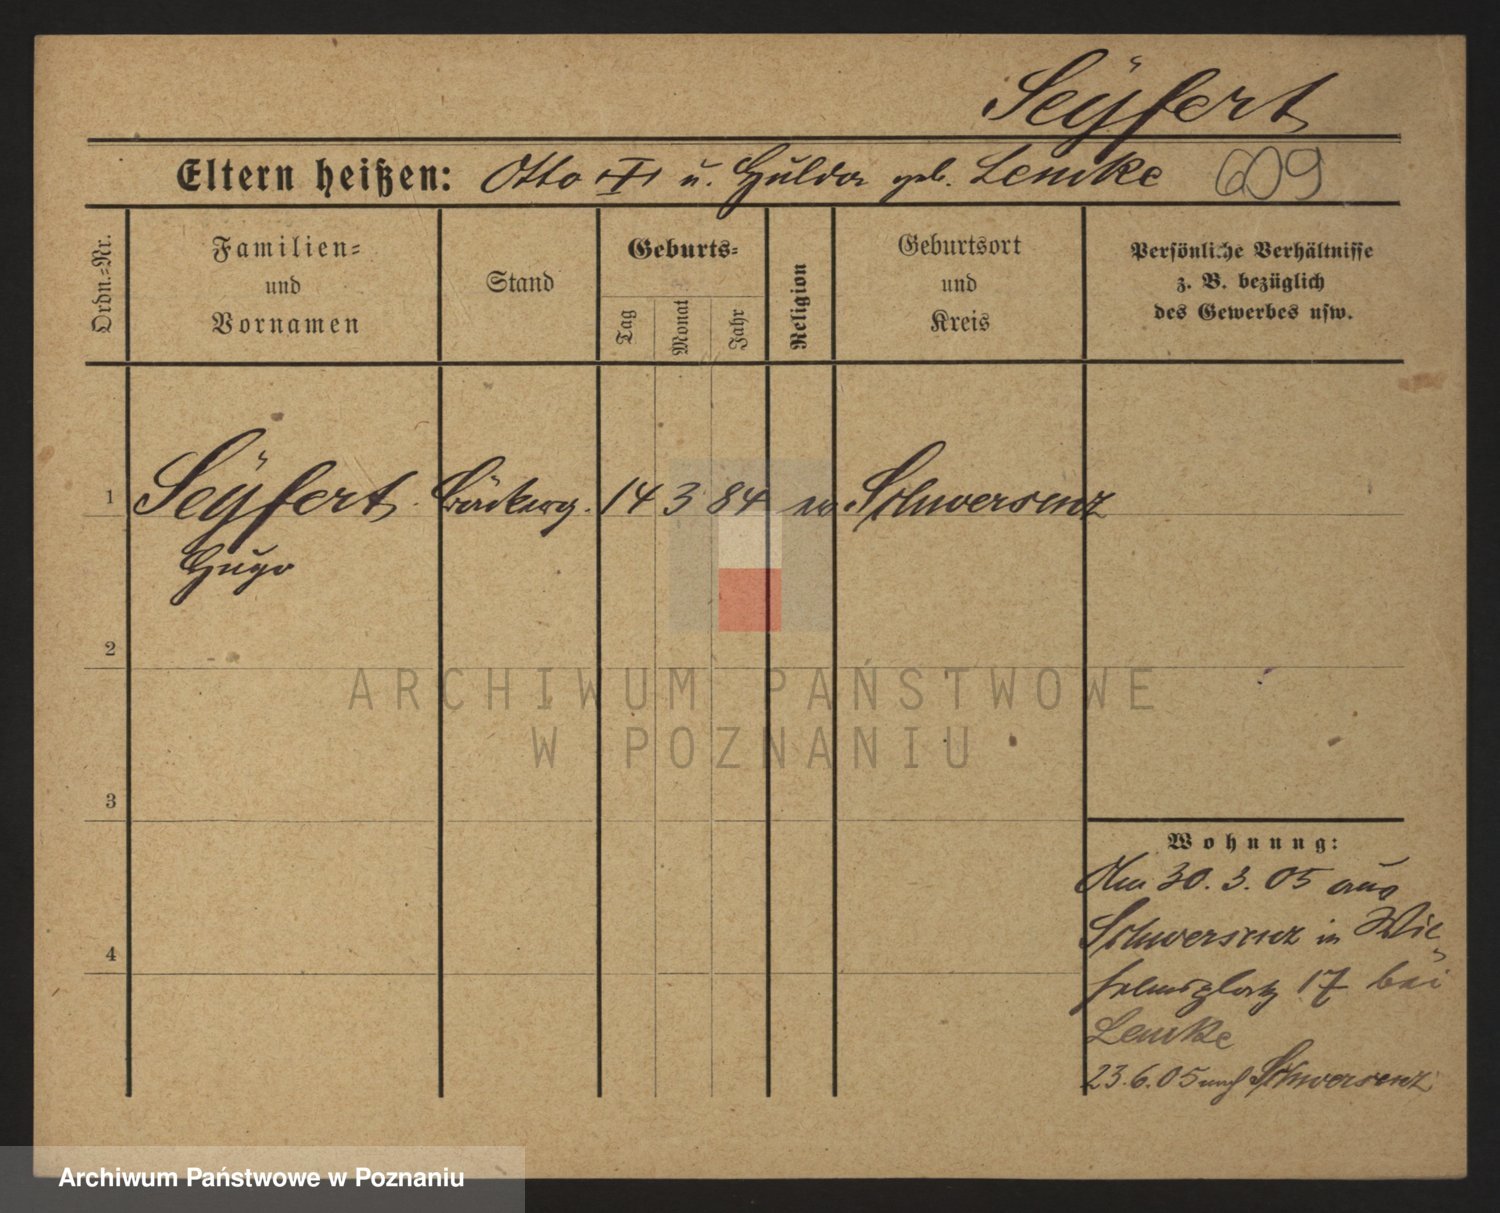 Seÿfert
Eltern heißen: Otto I u. Hulda geb. Lemke 609
Ordn.=Nr.
Familien=
und
Vornamen
Stand
Geburts=
Tag
Monat
Jahr
Religion
Geburtsort
und
Kreis
Persönliche Verhältnisse
z. B. bezüglich
des Gewerbes usw.
1 Seÿfert Bäckerg. 14 3 84 ev. Schwersenz
Hugo
2
3
4
Wohnung:
Am 30. 3. 05 aus
Schwersenz in Wil-
helmsplatz 17 bei
Lemke
23. 6. 05 nach Schwersenz
ARCHIWUM PAŃSTWOWE
W POZNANIU
Archiwum Państwowe w Poznaniu